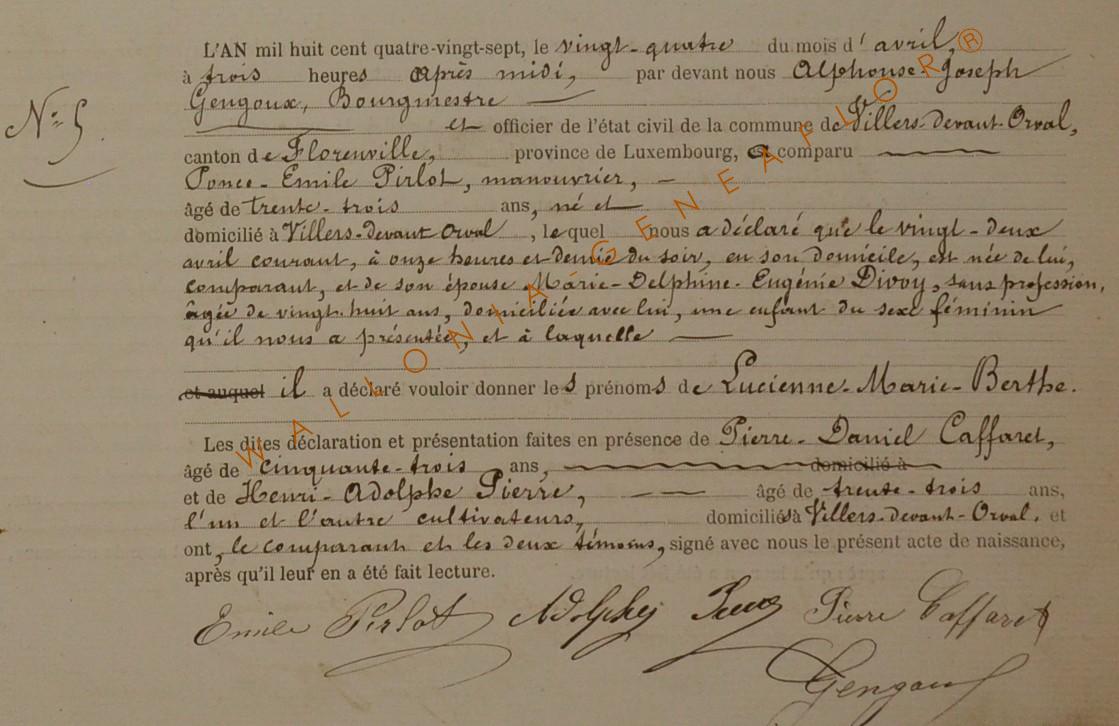 L'AN mil huit cent quatre-vingt-sept, le vingt-quatre du mois d'avril,
à trois heures après midi, par devant nous Alphonse-Joseph
Gengoux, Bourgmestre
N° 5.
et officier de l'état civil de la commune de Villers-devant-Orval,
canton de Florenville, province de Luxembourg, a comparu
Ponce-Emile Pirlot, manouvrier,
âgé de trente-trois ans, né et
domicilié à Villers-devant Orval, lequel nous a déclaré que le vingt-deux
avril courant, à onze heures et demie du soir, en son domicile, est née de lui,
comparant, et de son épouse Marie-Delphine-Eugénie Divoy, sans profession,
âgée de vingt-huit ans, domiciliée avec lui, une enfant du sexe féminin
qu'il nous a présentée, et à laquelle
et auquel il a déclaré vouloir donner les prénoms de Lucienne-Marie-Berthe.
Les dites déclaration et présentation faites en présence de Pierre-Daniel Caffaret,
âgé de cinquante-trois ans, domicilié à
et de Henri-Adolphe Pierre, âgé de trente-trois ans,
l'un et l'autre cultivateurs, domiciliés à Villers-devant-Orval, et
ont, le comparant et les deux témoins, signé avec nous le présent acte de naissance,
après qu'il leur en a été fait lecture.
Emile Pirlot Pierre Caffaret
Gengoux
WALLONIA GENEAFLOR®